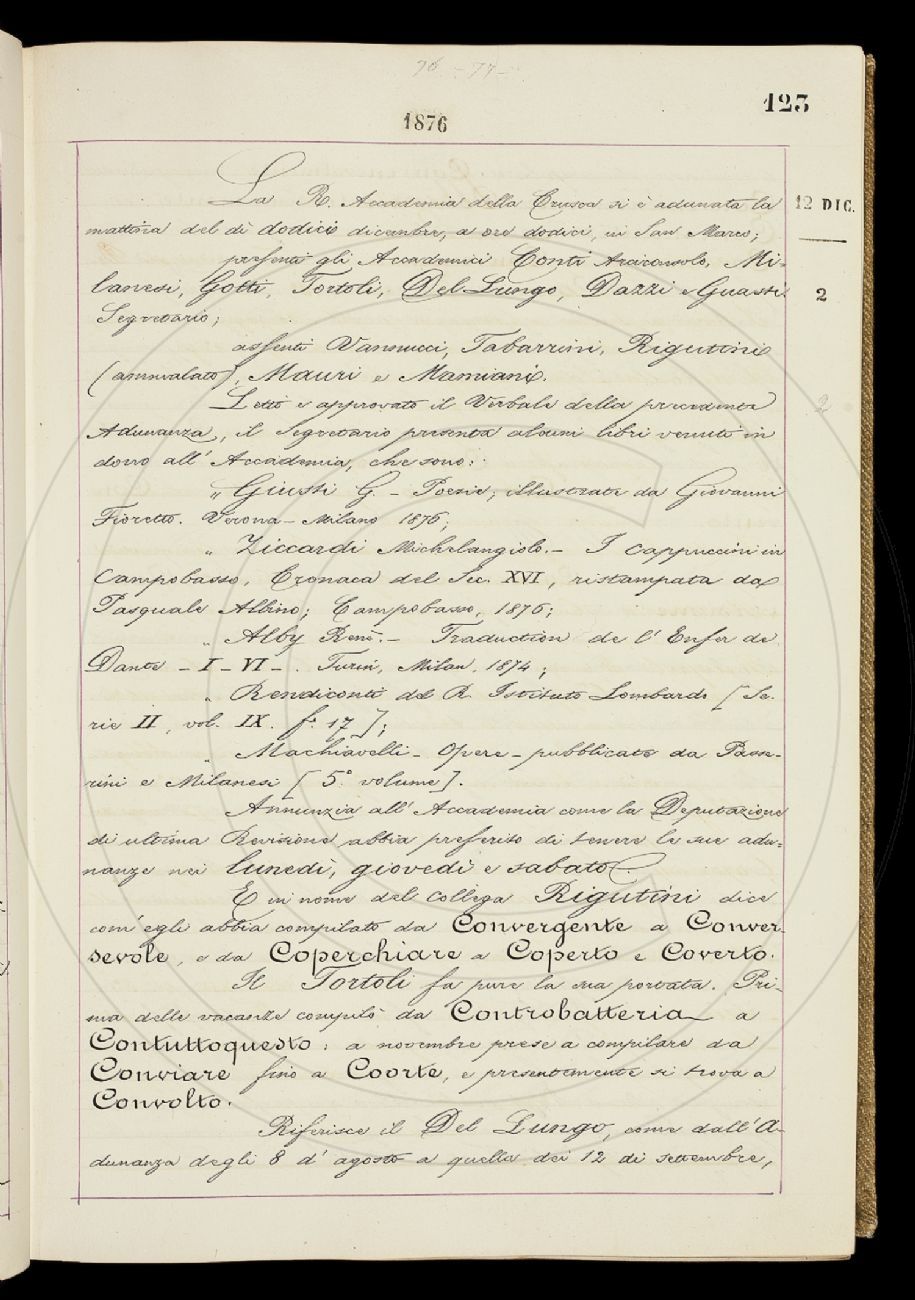 76 - 77 -
123
1876
La R. Accademia della Crusca si è adunata la
12 DIC.
mattina del dì dodici dicembre, a ore dodici, in San Marco;
presenti gli Accademici Conti Arciconsolo, Mi-
lanesi, Gotti, Tortoli, Del Lungo, Dazzi e Guasti
2
Segretario;
assenti Vannucci, Tabarrini, Rigutini
(ammalato), Mauri e Mamiani.
Letto e approvato il Verbale della precedente
2
Adunanza, il Segretario presenta alcuni libri venuti in
dono all' Accademia, che sono:
„ Giusti G. - Poesie, illustrate da Giovanni
Fioretto. Verona - Milano 1876;
„ Ziccardi Michelangiolo. - I cappuccini in
Campobasso, Cronaca del Sec. XVI, ristampata da
Pasquale Albino; Campobasso, 1876;
„ Alby René. - Traduction de l' Enfer de
Dante - I - VI - . Turin, Milan, 1874;
„ Rendiconti del R. Istituto Lombardo [Se-
rie II, vol. IX. f.° 17];
„ Machiavelli - Opere - pubblicate da Passe-
rini e Milanesi [5.° volume].
Annunzia all' Accademia come la Deputazione
di ultima Revisione abbia preferito di tenere le sue adu-
nanze nei lunedì, giovedì e sabato.
E in nome del collega Rigutini dice
com' egli abbia compilato da Convergente a Conver-
sevole, e da Coperchiare a Coperto e Coverto.
Il Tortoli fa pure la sua portata. Pri-
ma delle vacanze compilò da Controbatteria a
Contuttoquesto: a novembre prese a compilare da
Conviare fino a Coorte, e presentemente si trova a
Convolto.
Riferisce il Del Lungo, come dall' A-
dunanza degli 8 d' agosto a quella dei 12 di settembre,